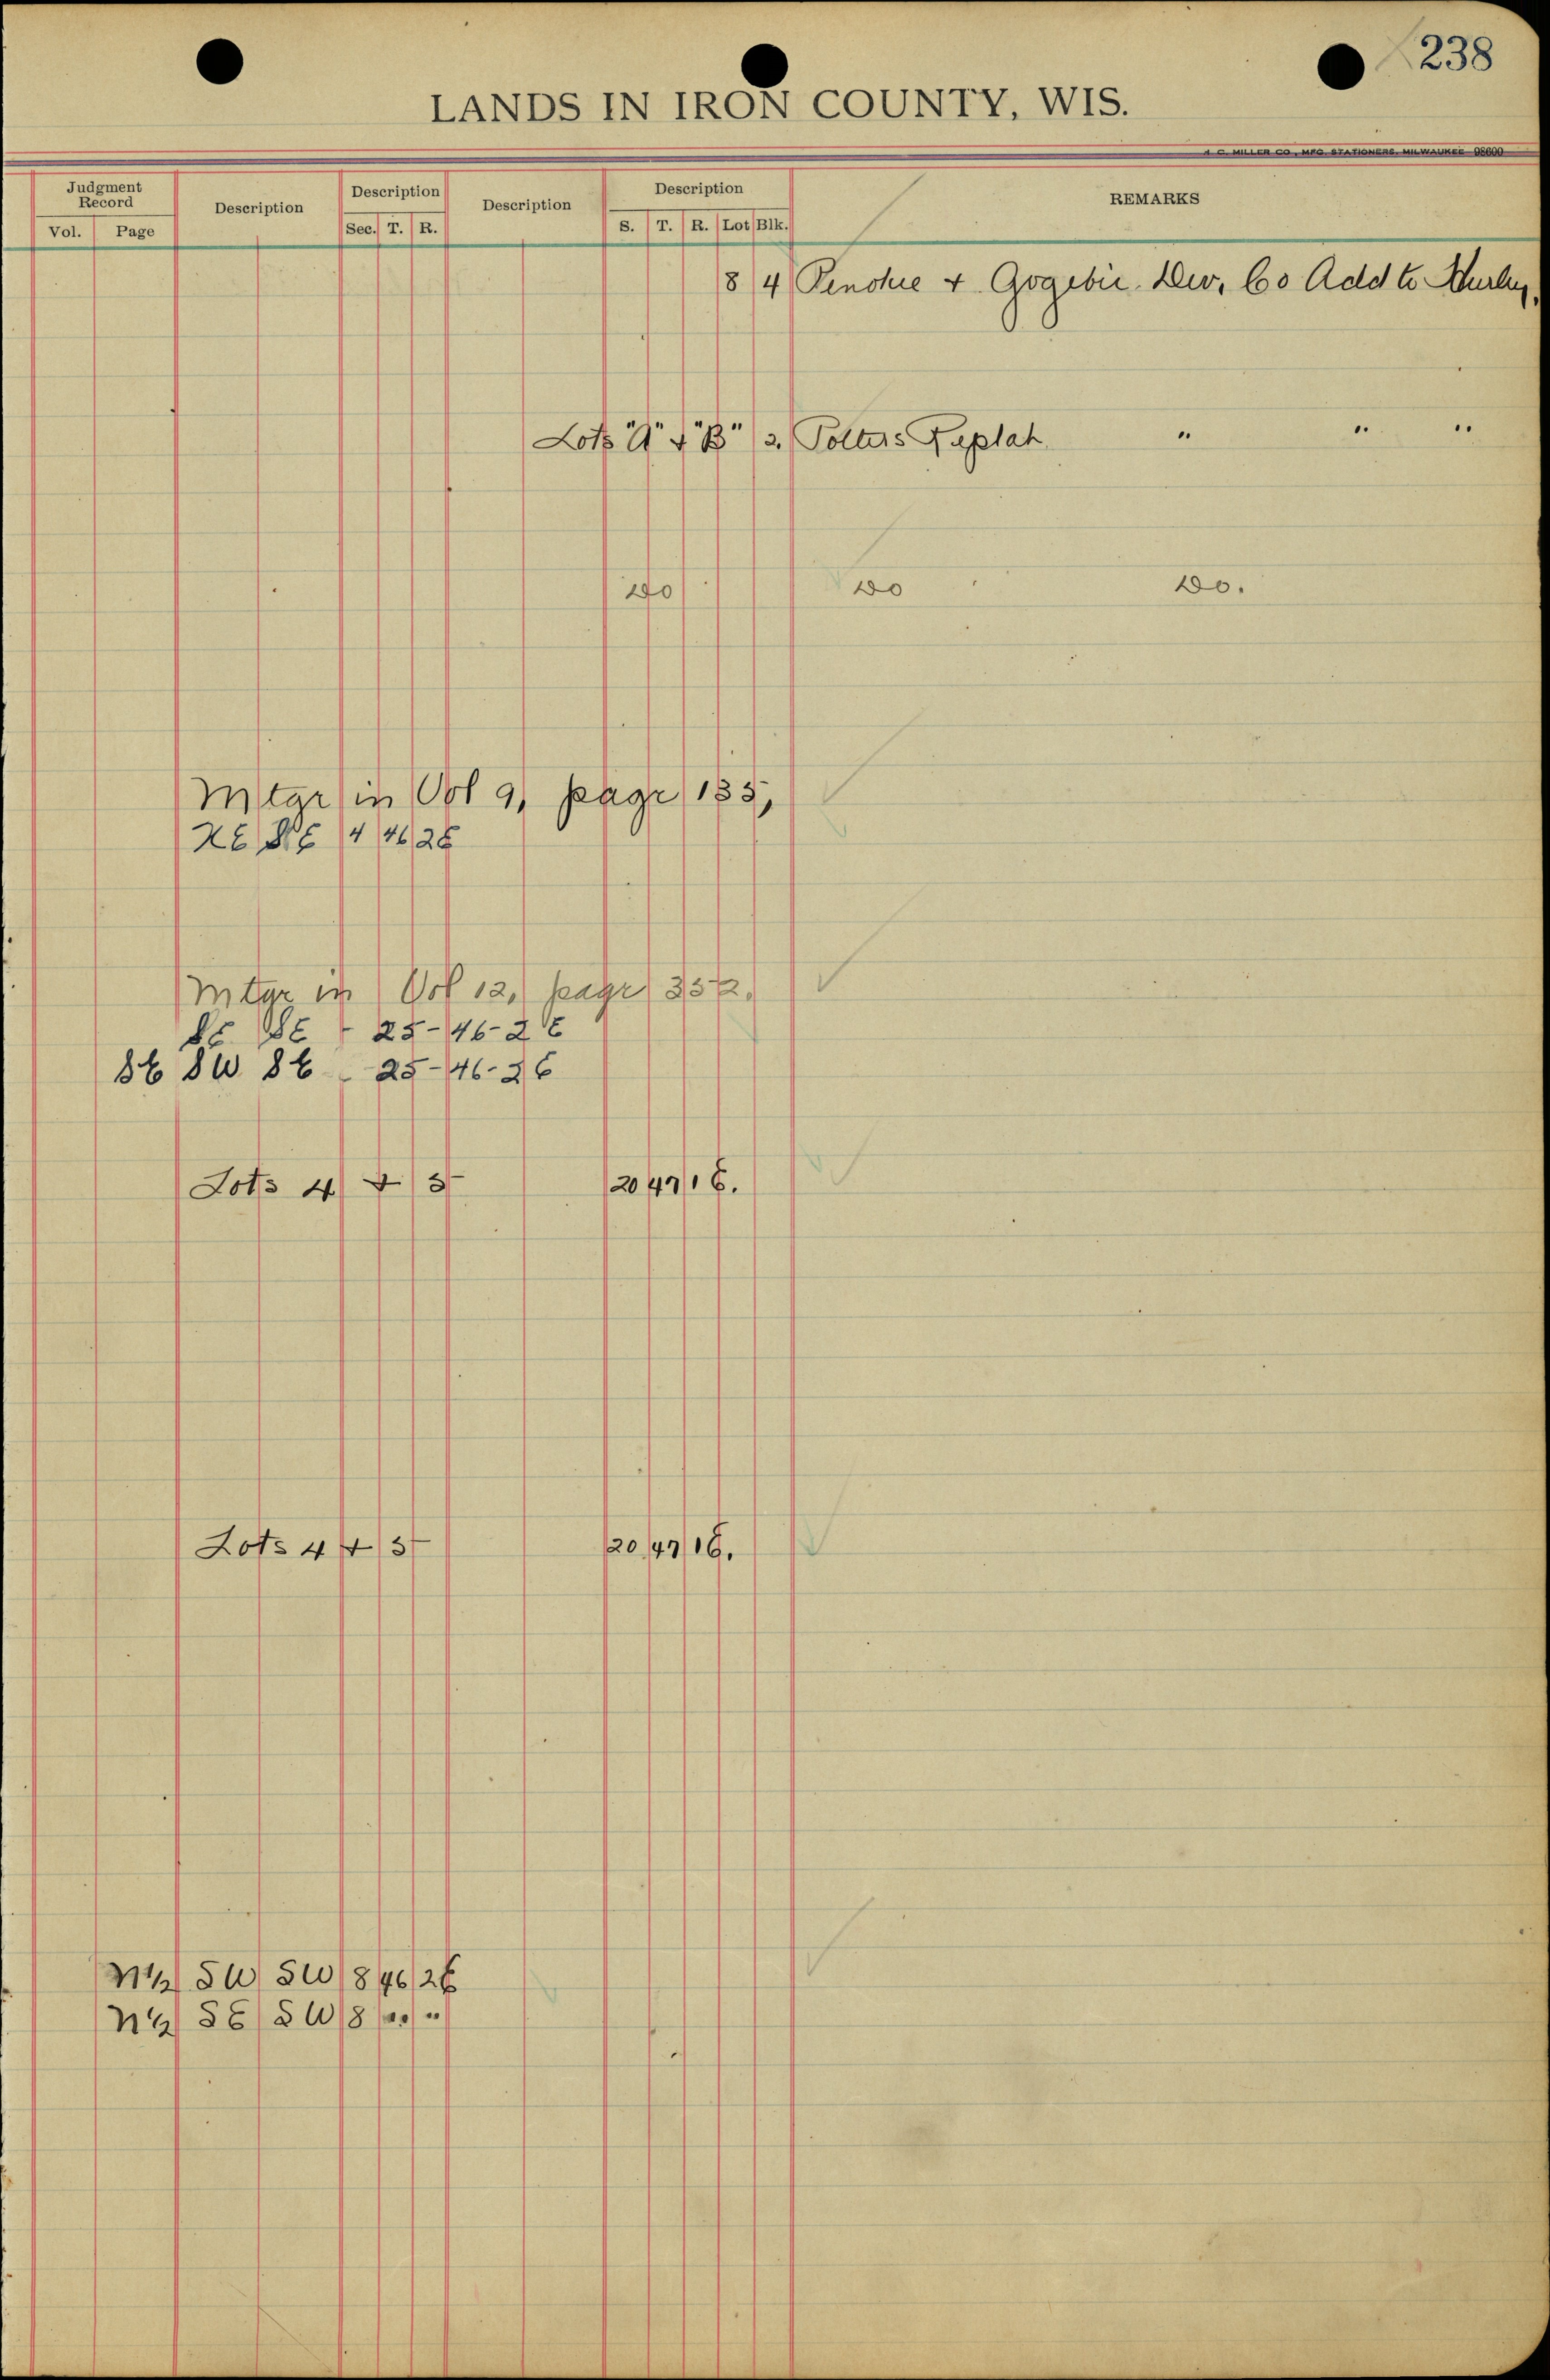 238
LANDS IN IRON COUNTY, WIS.
H. C. MILLER CO., MFG. STATIONERS, MILWAUKEE 98600
Judgment Record Description Description Description Description REMARKS
Vol. Page Sec. T. R. S. T. R. Lot Blk.
8 4 Penokee + Gogebic Dev. Co Add to Hurley.
Lots "A" + "B" 2. Potters Replat " " "
Do Do Do.
Mtge in Vol 9, page 135,
NE SE 4 46 2E
Mtge in Vol 12, page 352.
SE SE - 25-46-2E
SE SW SE - 25-46-2E
Lots 4 + 5 20 47 1E.
Lots 4 + 5 20 47 1E.
N1/2 SW SW 8 46 2E
N1/2 SE SW 8 " "